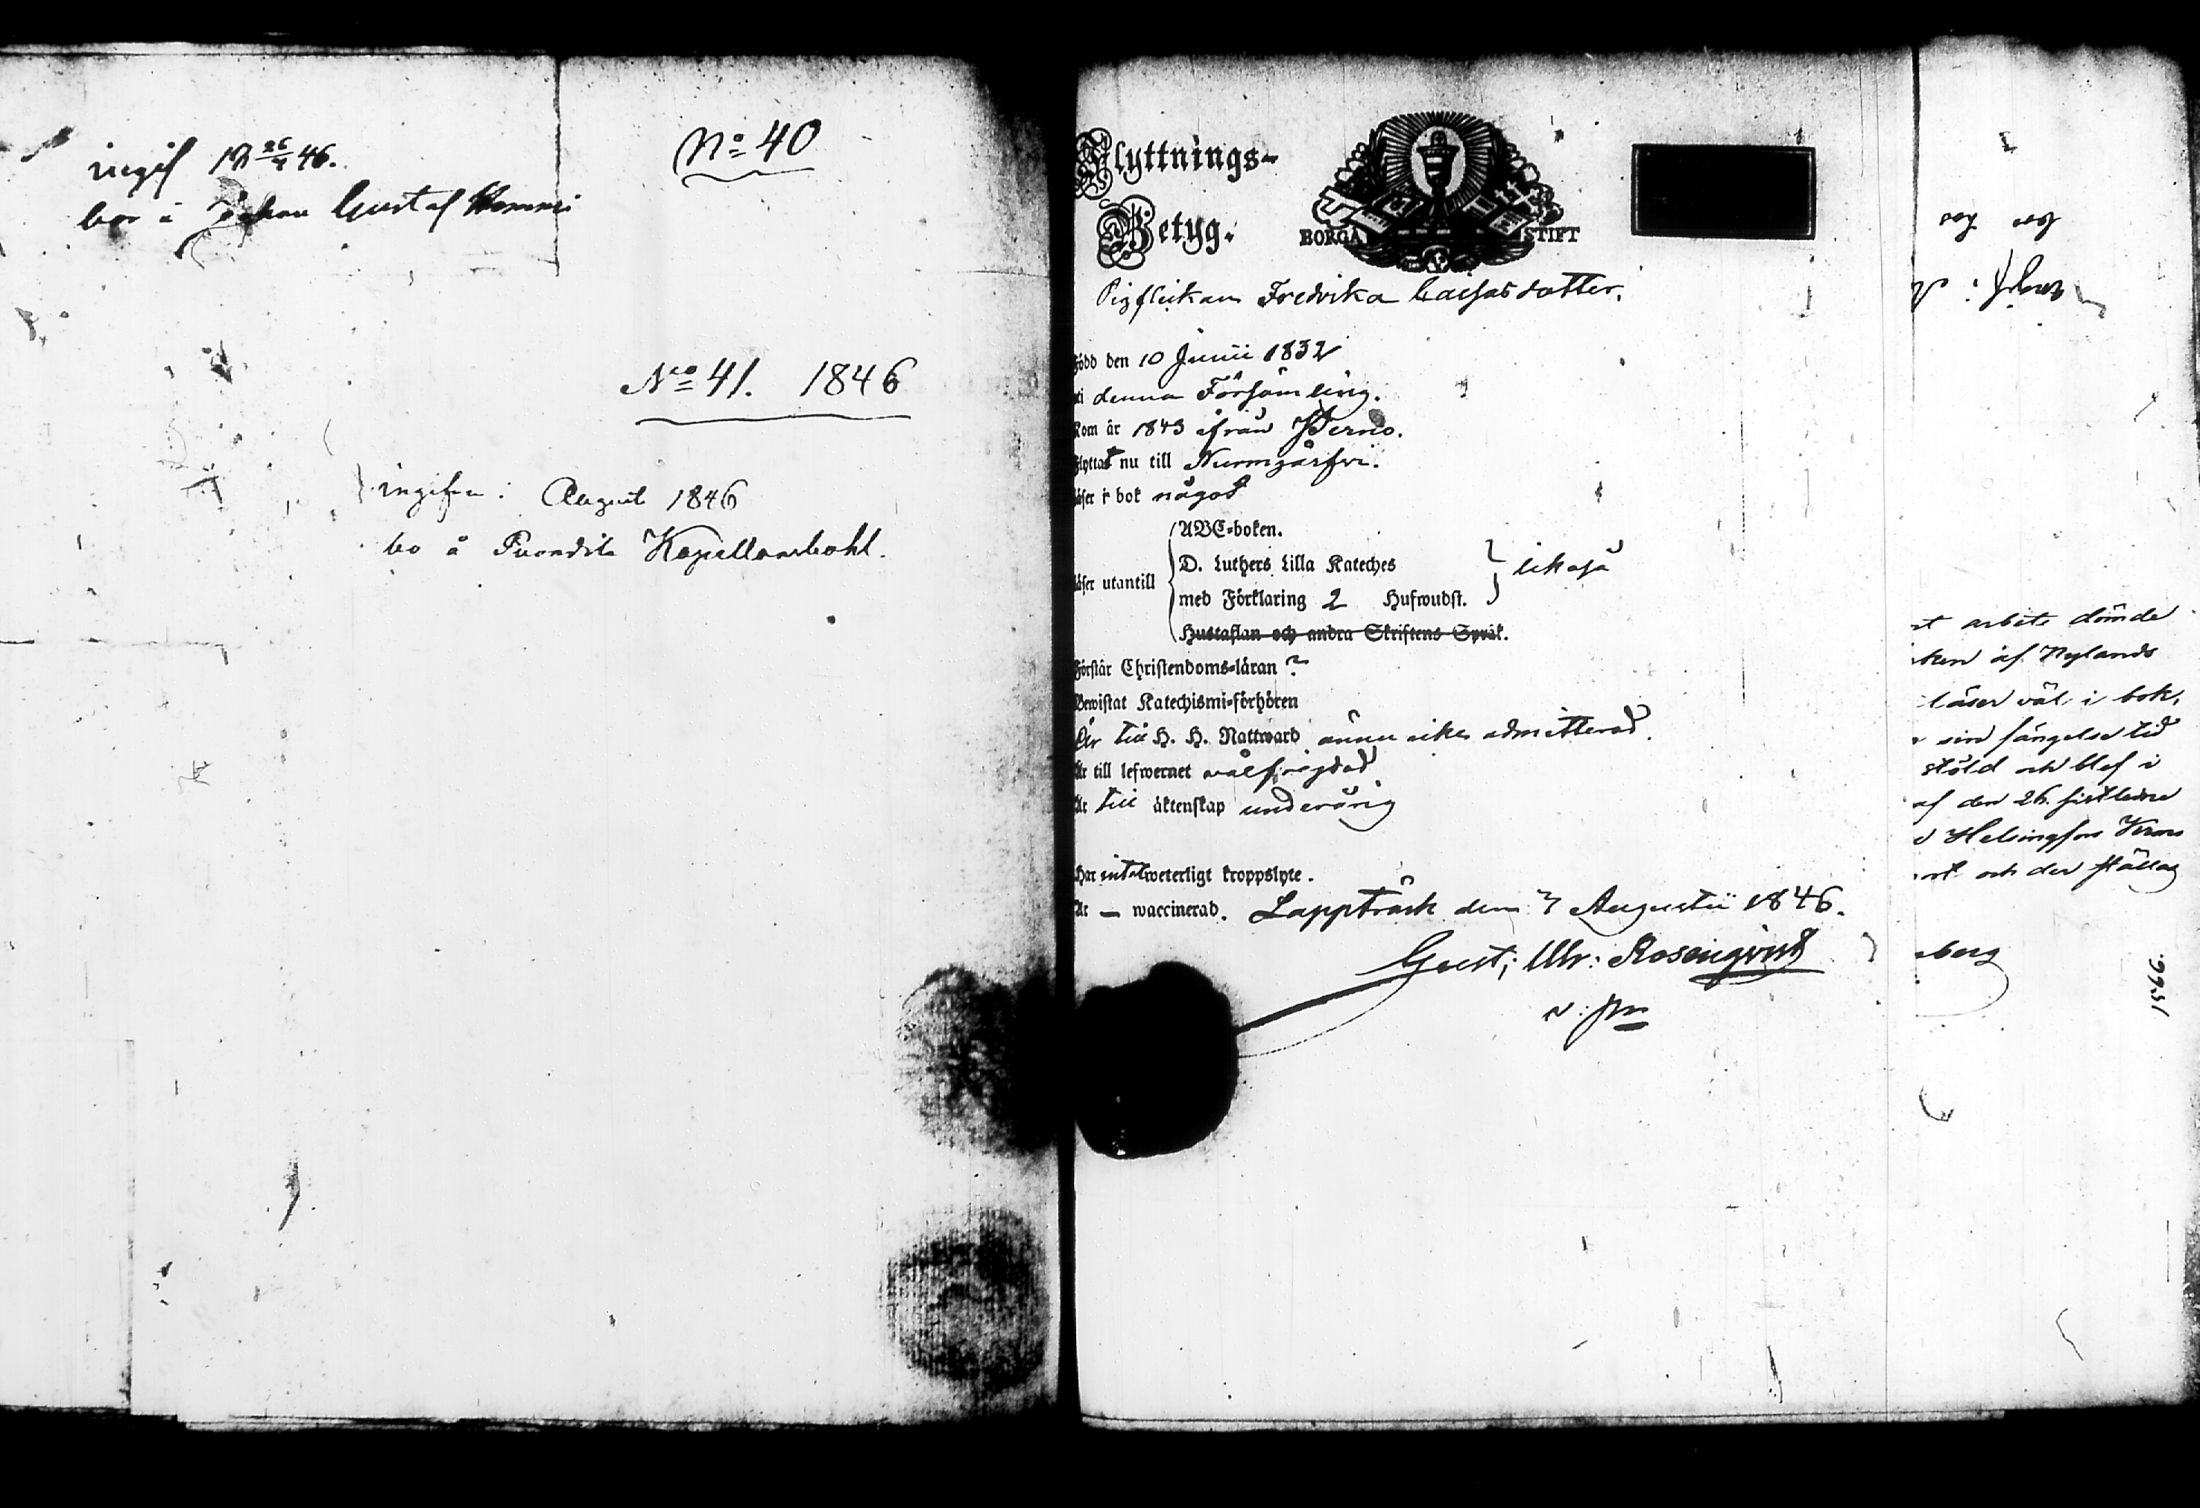 No 40
ingif 18 26/4 46.
bor å Johan Gustaf Hommi
No 41. 1846
ingifven i August 1846
bo å Pucndila Kapellansbohl.
Flyttnings-
Betyg.
BORGÅ STIFT
Pigflickan Fredrika Caisasdotter.
Född den 10 Junii 1832
uti denna Församling.
Kom år 1843 ifrån Perno.
Flyttar nu till Nummijärfvi.
Läser i bok något
Läser utantill
ABC-boken.
D. Luthers Lilla Kateches
med Förklaring 2 Hufwudst.
likaså
Hustaflan och andra Skriftens Språk.
Förstår Christendoms-läran
Bewistat Katechismi-förhören
Är till H. H. Nattward ännu icke admitterad.
Är till lefwernet välfrejdad
Är till äktenskap underårig
Har intet weterligt kroppslyte.
Är — waccinerad. Lappträsk den 7 Augustii 1846.
Gust: Ulr: Rosenqvist
v: p
arbete dömde
af Nylands
läser väl i bok,
sin fängelse tid
stöld och blef i
af den 26. sistledne
Helsingfors Krono
och der ställas
berg